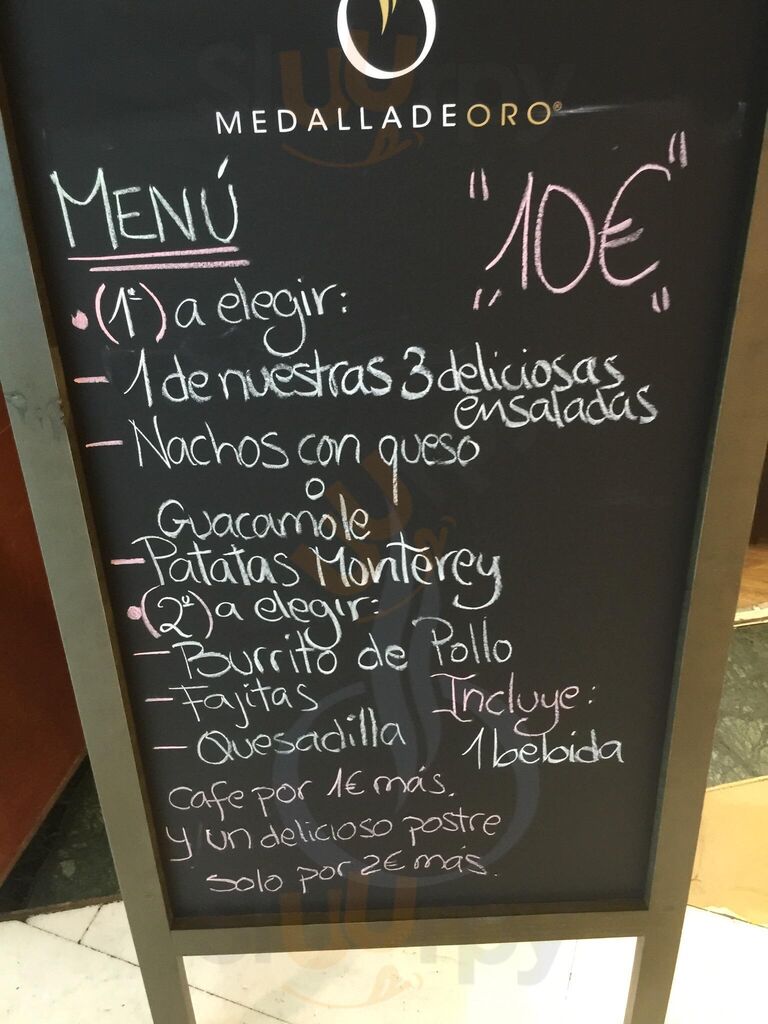 MEDALLADEORO®
MENÚ
"10€"
• (1º) a elegir:
- 1 de nuestras 3 deliciosas
ensaladas
- Nachos con queso
o
Guacamole
- Patatas Monterey
• (2º) a elegir:
- Burrito de Pollo
- Fajitas
- Quesadilla
Incluye:
1 bebida
cafe por 1€ más.
y un delicioso postre
solo por 2€ más.
sluurpy
sluurpy
sluurpy